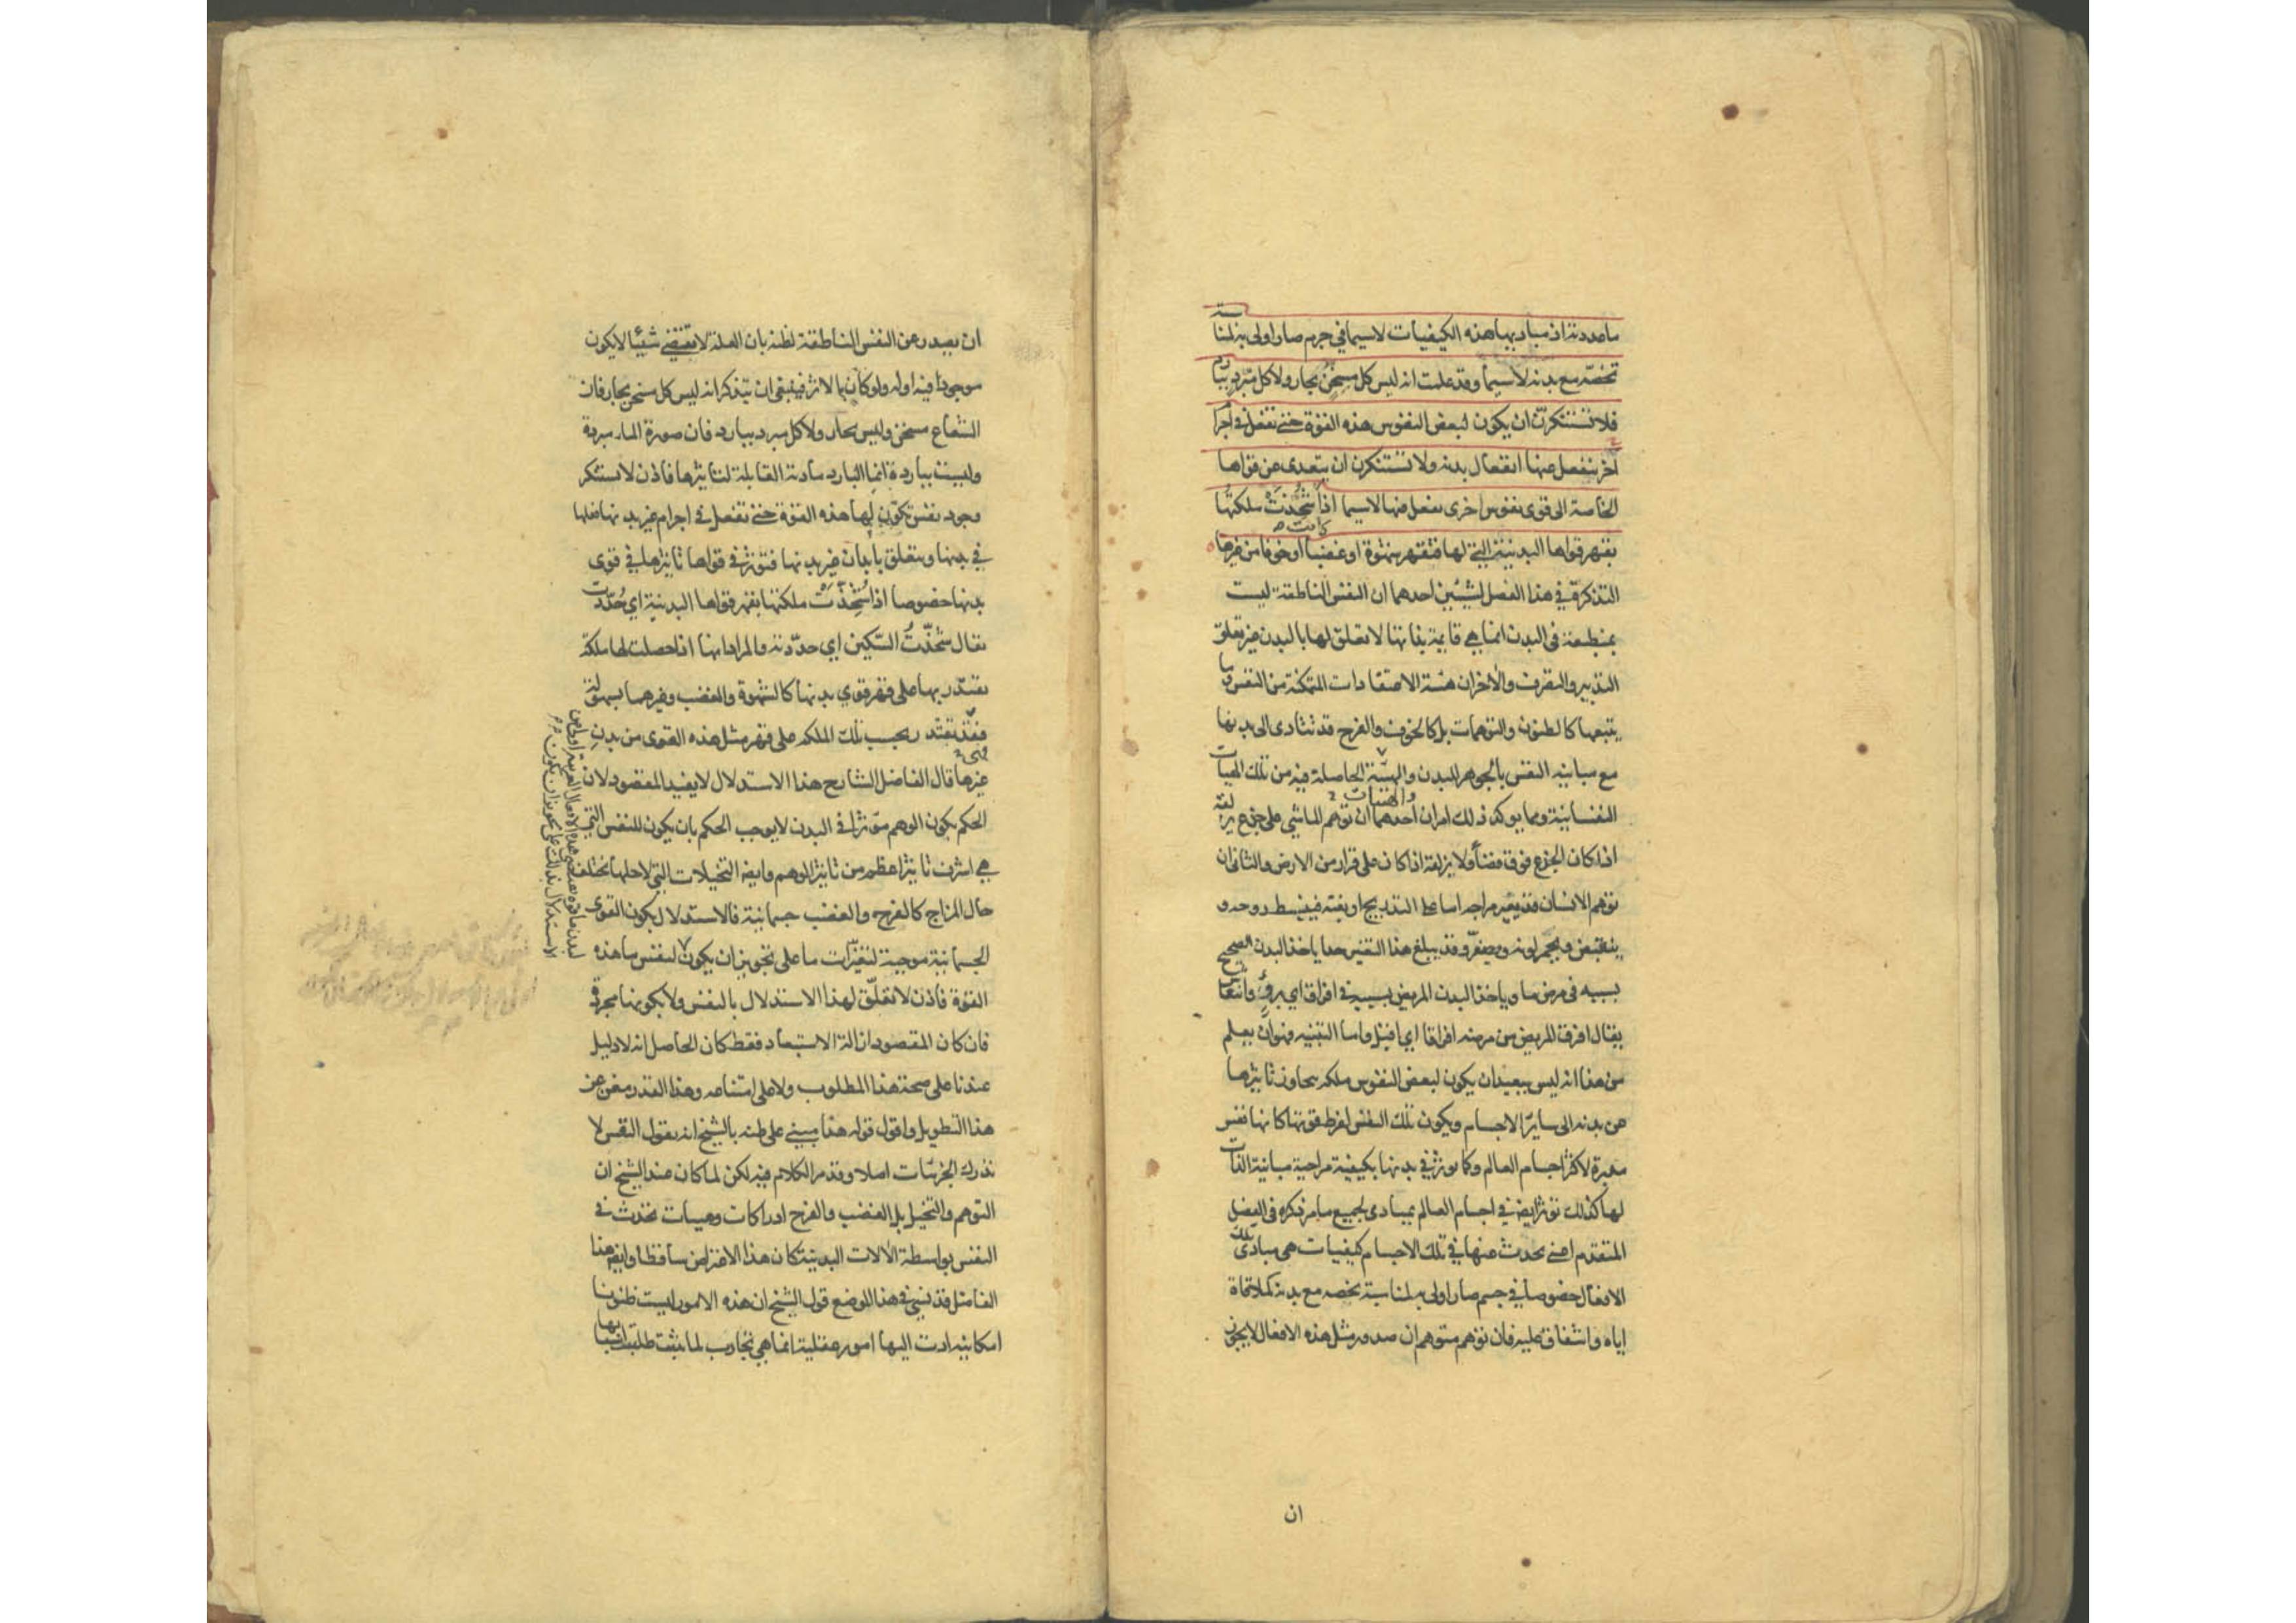 ما عددته اذ مباديها هذه الكيفيات لاسيما في جرم صار اولى به لمناسبة
تخصه مع بدنه لاسيما وقد علمت انه ليس كل مسخن بحار ولا كل مبرد ببارد
فلا تستنكرن ان يكون لبعض النفوس هذه القوة حتى تفعل في اجرام
اخر ينفعل عنها انفعال بدنه ولا تستنكرن ان يتعدى من قواها
الخاصة الى قوى نفوس اخرى تفعل فيها لاسيما اذا شحذت ملكتها
بقهر قواها البدنية التي لها فتقهر شهوة او غضبا او خوفا من غيرها
التذكرة في هذا الفصل لشيئين احدهما ان النفس الناطقة ليست
بمنطبعة في البدن انما هي قايمة بذاتها لا تعلق لها بالبدن غير تعلق
التدبير والتصرف والاخر ان هيئة الاعتقادات المتمكنة من النفس وما
يتبعها كالظنون والتوهمات بل كالخوف والفرح قد تتادى الى بدنها
مع مباينة النفس بالجوهر للبدن والهيئة الحاصلة فيه من تلك الهيات
والهيئات
النفسانية ومما يوكد ذلك امران احدهما ان توهم الماشي على جذع يزلقه
اذا كان الجذع فوق فضاء ولا يزلقه اذا كان على قرار من الارض والثاني ان
توهم الانسان قد يغير مزاجه اما على التدريج او بغتة فينبسط روحه و
ينقبض ويحمر لونه ويصفر وقد يبلغ هذا التغير حدا ياخذ البدن الصحيح
بسببه في مرض ما وياخذ البدن المريض بسببه في افراق اي برء وانتعاش
يقال افرق المريض من مرضه افراقا اي اقبل واما التنبيه فهو ان يعلم
من هذا انه ليس ببعيد ان يكون لبعض النفوس ملكه يتجاوز تاثيرها
عن بدنه الى ساير الاجسام ويكون تلك النفس لفرط قوتها كانها نفس
مدبرة لاكثر اجسام العالم وكما يوثر في بدنها بكيفية مزاجية مباينة الذات
لها كذلك توثر ايضا في اجسام العالم بمبادى لجميع ما مر ذكره في الفصل
المتقدم اعني يحدث عنها في تلك الاجسام كيفيات هي مبادى تلك
الافعال خصوصا في جسم صار اولى به لمناسبة تخصه مع بدنه كملاقاة
اياه واشفاق عليه فان توهم متوهم ان صدور مثل هذه الافعال لا يجوز
ان
ان يصدر عن النفس الناطقة لظنه بان العلة لا تقتضي شيئا لا يكون
موجودا فيه اوله ولو كان بالاثر فينبغي ان يتذكر انه ليس كل مسخن بحار فان
الشعاع مسخن وليس بحار ولا كل مبرد ببارد فان صورة الماء مبردة
وليست بباردة انما البارد مادته القابلة لتاثيرها فاذن لا تستنكر
وجود نفس تكون لها هذه القوة حتى تفعل في اجرام غير بدنها فعلها
في بدنها ويتعلق بابدان غير بدنها فتوثر في قواها تاثيرها في قوى
بدنها خصوصا اذا شحذت ملكتها بقهر قواها البدنية اي حددت
يقال شحذت السكين اي حددته والمراد انها اذا حصلت لها ملكة
تقتدر بها على قهر قوى بدنها كالشهوة والغضب وغيرهما بسهولة
فقد تقتدر بحسب تلك الملكه على قهر مثل هذه القوى من بدن
غيرها قال الفاضل الشارح هذا الاستدلال لا يفيد المقصود لان
الحكم بكون الوهم موثرا في البدن لا يوجب الحكم بان يكون للنفس التي
هي اشرف تاثيرا اعظم من تاثير الوهم وايضا التخيلات التي لاجلها تختلف
حال المزاج كالفرح والغضب جسمانية فالاستدلال بكون القوى
الجسمانية موجبة لتغيرات ما على تجويز ان يكون لنفس ما هذه
القوة فاذن لا تعلق لهذا الاستدلال بالنفس ولا بكونها مجردة
فان كان المقصود ازالة الاستبعاد فقط كان الحاصل انه لا دليل
عندنا على صحة هذا المطلوب ولا على امتناعه وهذا القدر مغن عن
هذا التطويل واقول قوله هذا مبني على ظنه بالشيخ انه يقول النفس لا
تدرك الجزئيات اصلا وقد مر الكلام فيه لكن لما كان عند الشيخ ان
التوهم والتخيل بل الغضب والفرح ادراكات وهيات تحدث في
النفس بواسطة الآلات البدنية كان هذا الاعتراض ساقطا وايضا هذا
الفاضل قد نسي في هذا الموضع قول الشيخ ان هذه الامور ليست ظنونا
امكانية ادت اليها امور عقلية انما هي تجارب لما ثبتت طلبت اسبابها